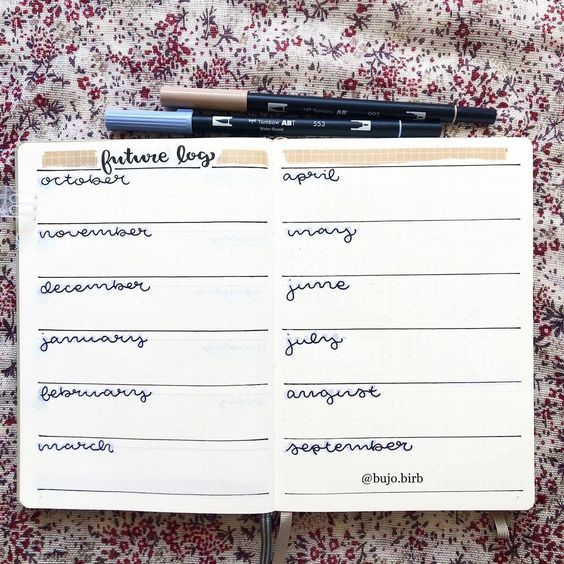 Tombow AB
Tombow ABT 553
future log
october
november
december
january
february
march
april
may
june
july
august
september
@bujo.birb